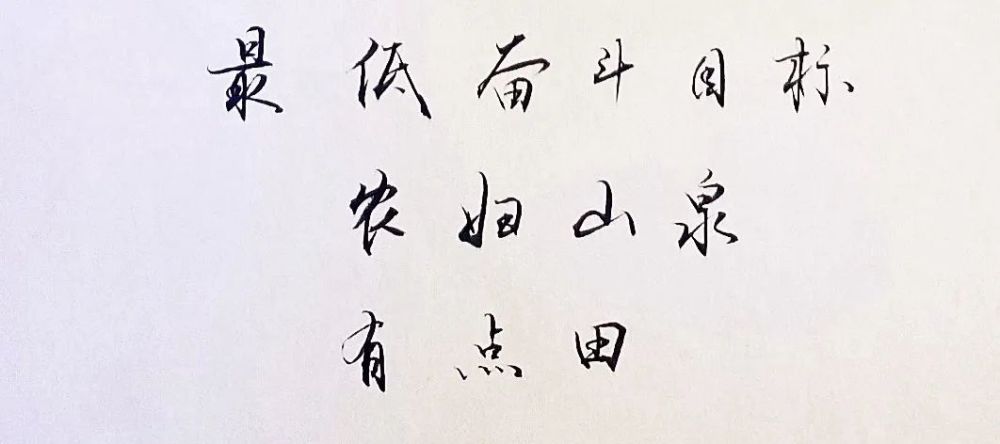 最低奋斗目标
农妇山泉
有点田